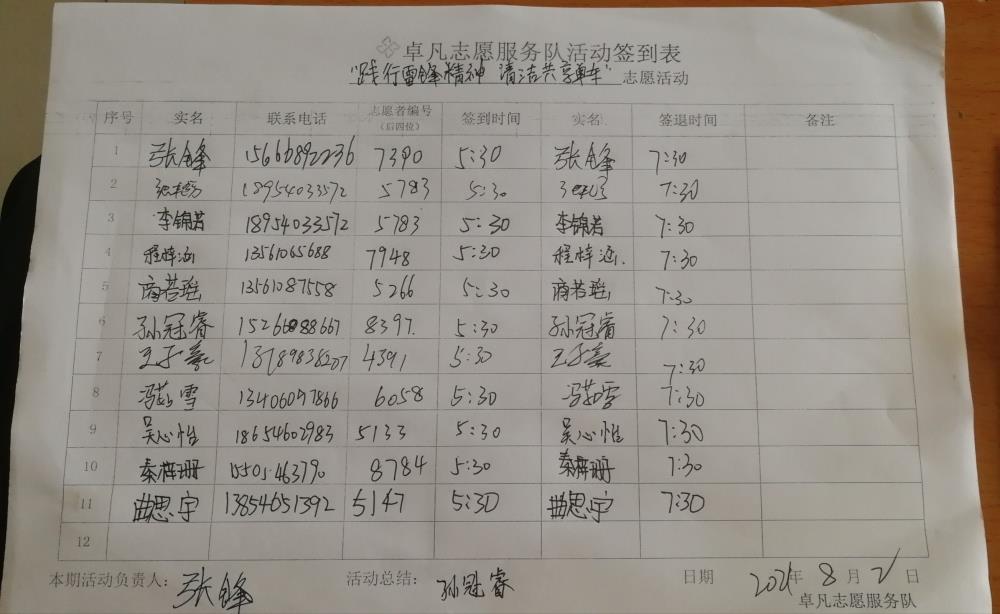 卓凡志愿服务队活动签到表
"践行雷锋精神 清洁共享单车" 志愿活动
序号 实名 联系电话 志愿者编号(后四位) 签到时间 实名 签退时间 备注
1 张锋 15666892236 7390 5:30 张锋 7:30
2 18954033572 5783 5:30 7:30
3 李锦若 18954033572 5783 5:30 李锦若 7:30
4 程梓涵 13561065688 7948 5:30 程梓涵. 7:30
5 商若瑶 13561087558 5266 5:30 商若瑶 7:30
6 孙冠睿 8397. 5:30 孙冠睿 7:30
7 王子豪 4391 5:30 王子豪 7:30
8 冯茹雪 13406097866 6058 5:30 冯茹雪 7:30
9 吴心怡 18654602983 5133 5:30 吴心怡 7:30
10 秦梓珊 15505463790 8784 5:30 秦梓珊 7:30
11 曲思宇 13854651392 5147 5:30 曲思宇 7:30
12
本期活动负责人: 张锋 活动总结: 孙冠睿 日期 2021年 8月 21日
卓凡志愿服务队